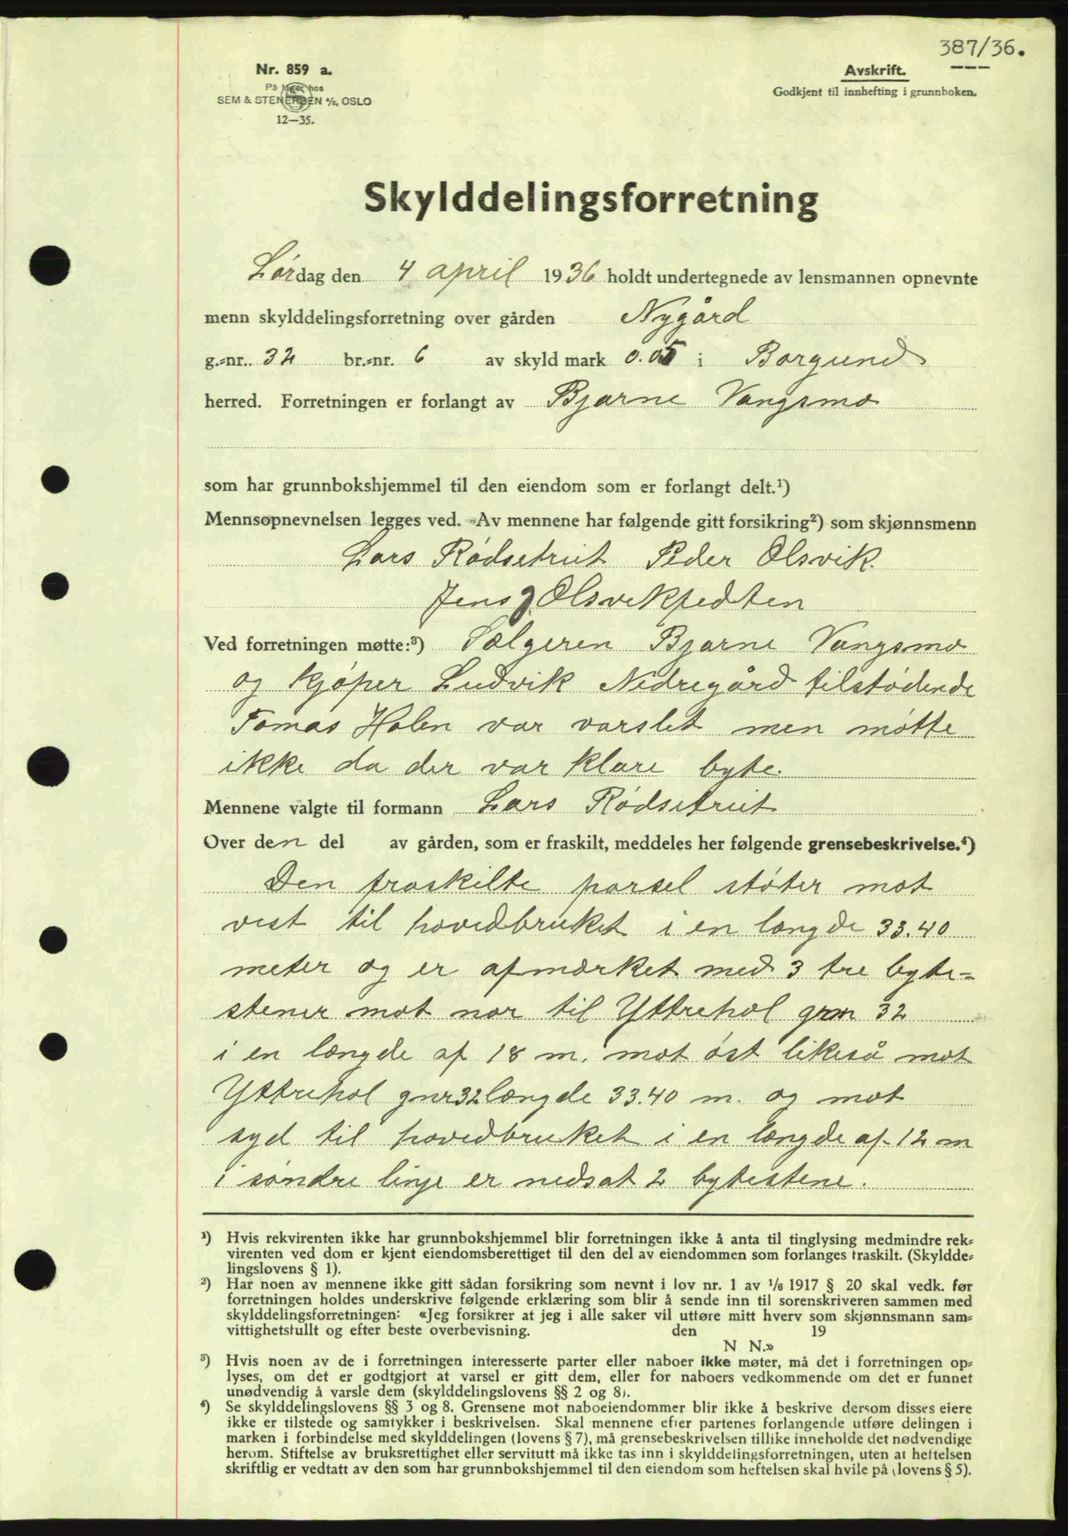 387/36.
Nr. 859 a.
På lager hos
SEM & STENERSEN A/S, OSLO
12—35.
Avskrift.
Godkjent til innhefting i grunnboken.
Skylddelingsforretning
Lørdag den 4 april 1936 holdt undertegnede av lensmannen opnevnte
menn skylddelingsforretning over gården Nygård
g.-nr. 32 br.-nr. 6 av skyld mark 0.05 i Borgund
herred. Forretningen er forlangt av Bjarne Vangsmo
som har grunnbokshjemmel til den eiendom som er forlangt delt.¹)
Mennsopnevnelsen legges ved. Av mennene har følgende gitt forsikring²) som skjønnsmenn
Lars Rødsetreit Peder Olsvik.
Jens J Olsvikfedten
Ved forretningen møtte:³) Sælgeren Bjarne Vangsmo
og kjøper Ludvik Nedregård tilstødende
Tomas Holen var varslet men møtte
ikke da der var klare byte.
Mennene valgte til formann Lars Rødsetreit
Over den del av gården, som er fraskilt, meddeles her følgende grensebeskrivelse.⁴)
Den fraskilte parsel støter mot
vest til hovedbruket i en længde 33.40
meter og er afmærket med 3 tre byte-
stener mot nor til Yttrehol grn 32
i en længde af 18 m. mot øst likeså mot
Yttrehol gnr 32 længde 33.40 m. og mot
syd til hovedbruket i en længde af 12 m
i søndre linje er nedsat 2 bytestene.
¹) Hvis rekvirenten ikke har grunnbokshjemmel blir forretningen ikke å anta til tinglysing medmindre rek-
virenten ved dom er kjent eiendomsberettiget til den del av eiendommen som forlanges fraskilt. (Skyldde-
lingslovens § 1).
²) Har noen av mennene ikke gitt sådan forsikring som nevnt i lov nr. 1 av 1/6 1917 § 20 skal vedk. før
forretningen holdes underskrive følgende erklæring som blir å sende inn til sorenskriveren sammen med
skylddelingsforretningen: «Jeg forsikrer at jeg i alle saker vil utføre mitt hverv som skjønnsmann sam-
vittighetsfullt og efter beste overbevisning. den 19
N N.»
³) Hvis noen av de i forretningen interesserte parter eller naboer ikke møter, må det i forretningen op-
lyses, om det er godtgjort at varsel er gitt dem, eller for naboers vedkommende om det er funnet
unødvendig å varsle dem (skylddelingslovens §§ 2 og 8).
⁴) Se skylddelingslovens §§ 3 og 8. Grensene mot naboeiendommer blir ikke å beskrive dersom disses eiere
ikke er tilstede og samtykker i beskrivelsen. Skal mennene efter partenes forlangende utføre delingen i
marken i forbindelse med skylddelingen (lovens § 7), må grensebeskrivelsen tillike inneholde det nødvendige
herom. Stiftelse av bruksrettighet eller servitutt må ikke tas inn i skylddelingsforretningen, uten at heftelsen
skriftlig er vedtatt av den som har grunnbokshjemmel til den eiendom som heftelsen skal hvile på (lovens § 5).